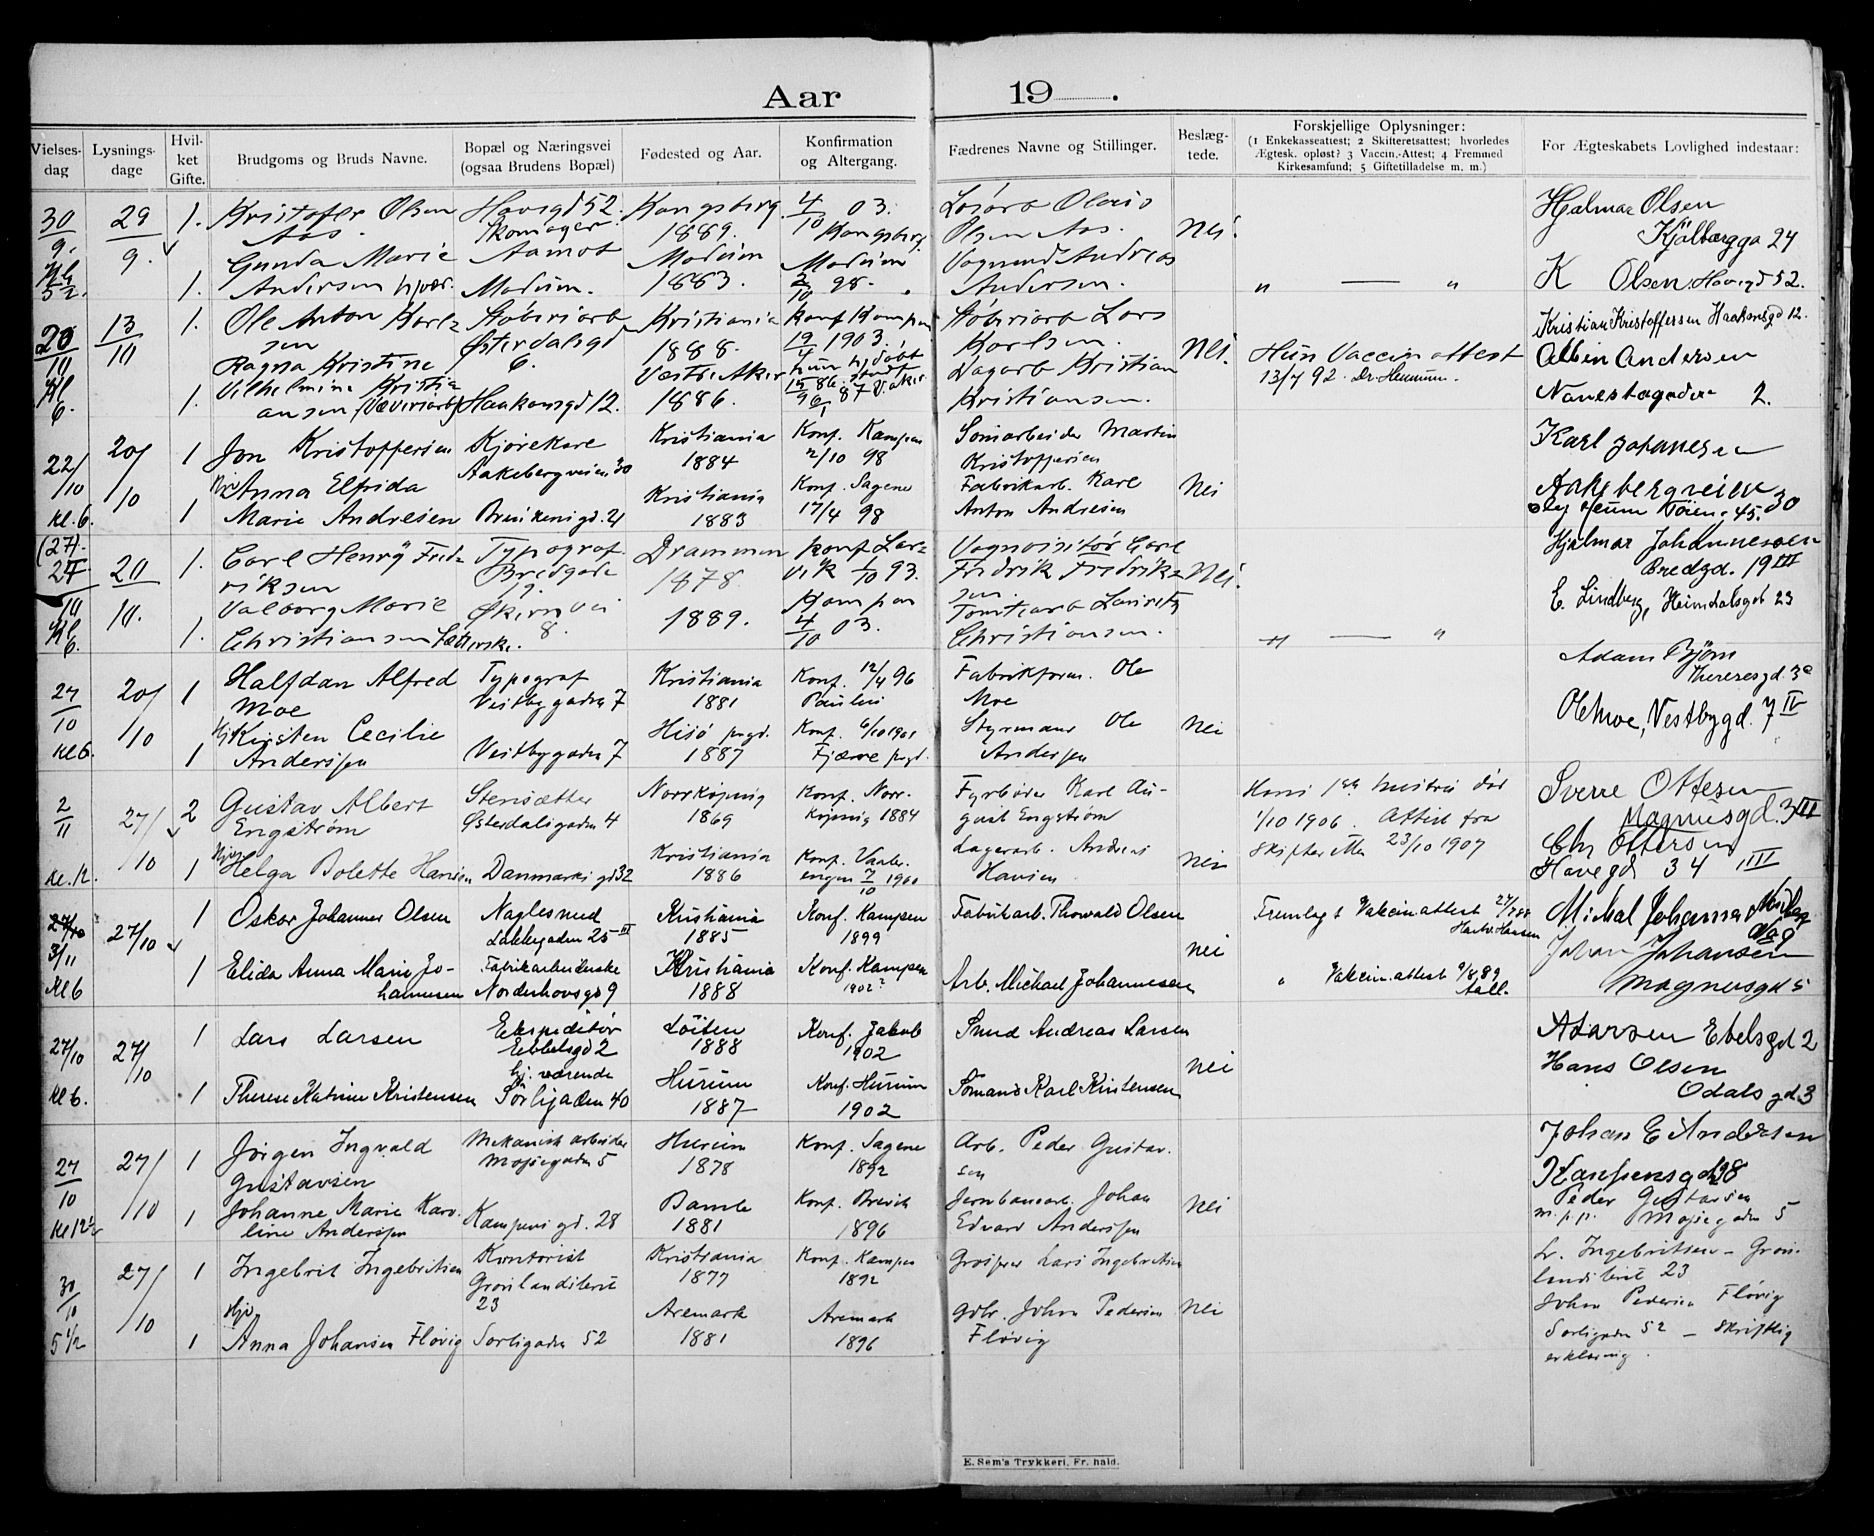 Aar 19 .
Vielses-dag
Lysnings-dage
Hvil-ket Gifte.
Brudgoms og Bruds Navne.
Bopæl og Næringsvei (ogsaa Brudens Bopæl)
Fødested og Aar.
Konfirmation og Altergang.
Fædrenes Navne og Stillinger.
Beslæg-tede.
Forskjellige Oplysninger:
(1 Enkekasseattest; 2 Skifteretsattest; hvorledes
Ægtesk. opløst? 3 Vaccin.-Attest; 4 Fremmed
Kirkesamfund; 5 Giftetilladelse m. m.)
For Ægteskabets Lovlighed indestaar:
30/9 29/9 1. Kristofer Olsen Aas. Havegd 52. Skomager Kongsberg 1889. 4/10 03. Kongsberg Olaus Olsen Aas. Nei. Hjalmar Olsen
Kjølberggа 24
1. Gunda Marie Andersen Aamot Modum. Modum 1883. Modum 2/10 98. Vognmd Andreas Andersen. " — " K Olsen Havegd 52.
20/10 Kl 6. 13/10 1. Ole Anton Karlsen Støberiarb Østerdalsgd 6. Kristiania 1888. Konf Kampen 19/4 1903. Støberiarb Lars Karlsen. Nei. Kristian Kristoffersen Haakonsgd 12.
1. Ragna Kristine Vilhelmine Kristiansen (Væveriarb) Haakonsgd 12. Vestre Aker 1886. Dagarb Kristian Kristiansen. Hun Vaccinattest 13/7 92. Albin Andersen
2.
22/10 kl. 6. 20/10 1 Jon Kristoffersen Kjørekare Aakebergveien 30 Kristiania 1884 Konf. Kampen 2/10 98 Martin Kristoffersen Nei Karl Johanesen
1 Anna Elfrida Marie Andresen gd. 21 Kristiania 1883 Konf. Sagene 17/4 98 Fabrikarb. Karl Anton Andresen Aakebergveien 30
Tøien g. 45.
(27). 27/10 Kl 6. 20/10. 1. Carl Henry Fridriksen Typograf Bredgade 19. Drammen 1878. Konf Larvik 1/10 93. Carl Fredrik Fredriksen. Nei. Hjalmar Johannessen
Bredgd. 19 III
1. Valborg Marie Christiansen Økernvei 8. 1889. Kampen 4/10 03. Tomtearb Lauritz Christiansen. " — " E. Lindberg, Heimdalsgd 23
27/10 kl 6. 20/10 1 Halfdan Alfred Moe Typograf Vestbygaden 7 Kristiania 1881 Konf. 12/4 96 Paulus Fabrikform. Ole Moe Nei Adam Bjørn
Theresesgd 3
1 Kirsten Cecilie Anderssen Vestbygaden 7 Hisø prgd. 1887 Konf. 6/10 1901 Fjære prgd. Styrmand Ole Anderssen Ole Moe, Vestbygd. 7 IV
2/11 kl. 12. 27/10 2 Gustav Albert Engstrøm Østerdalsgaden 4 Norrkøping 1869 Konf. Norrkøping 1884 Fyrbøder Karl August Engstrøm nei Hans 1ste hustru død 1/10 1906. Attest fra Skifteretten 23/10 1907 Sverre Ottesen
Magnusgd. 3 III
1 Helga Bolette Hansen Danmarks gd 32 Kristiania 1886 Konf. Vaalerengen 7/10 1900 Lagerarb. Andreas Hansen Chr Ottersen
Havegd 34 III
27/10 3/11 Kl 6 27/10 1 Oskar Johannes Olsen Naglesmed Lakkegaden 25 III Kristiania 1885 Konf. Kampen 1899 Fabrikarb. Thorvald Olsen nei Fremlagt Vakcinattest Michal Johannesen
1 Elida Anna Marie Johannesen Fabrikarbeiderske Norderhovsgd 9 Kristiania 1888 Konf. Kampen 1902? Arb. Michael Johannesen " Vakcinattest 9/8 89 Aall. Johan Johansen
Magnusgd 5
27/10 Kl 6. 27/10 1 Lars Larsen Ekspeditør Ebbelsgd 2 Løiten 1888 Konf. Jakob 1902 Smed Andreas Larsen nei A Larsen Ebelsgd 2
1 Therese Katrine Kristensen hj. værende Sørligaden 40 Hurum 1887 Konf. Hurum 1902 Sømand Karl Kristensen Hans Olsen
Odalsgd 3
27/10 kl 12½ 27/10 1 Jørgen Ingvald Gustavsen Mekanisk arbeider Mossegaden 5 Hurum 1878 Konf. Sagene 1892 Arb. Peder Gustavsen Nei Johan E Andersen
Kampensgd 28
1 Johanne Marie Karoline Anderssen Kampens gd. 28 Bamle 1881 Konf. Brevik 1896 Jernbanearb. Johan Edvard Anderssen Peder Gustavsen
m. p. p. Mossegaden 5
30/10 5 1/2 27/10 1 Ingebret Ingebretsen Kontorist Grønlandsleret 23 Kristiania 1877 Konf. Kampen 1892 Lars Ingebretsen Nei Lr. Ingebritsen – Grønlandsleret 23
1 Anna Johansen Fløvig Sorligaden 52 Aremark 1881 Aremark 1896 Gdbr. John Pedersen Fløvig John Pedersen Fløvig
Sorligaden 52 – skriftlig
erklæring.
E. Sem's Trykkeri, Fr. hald.